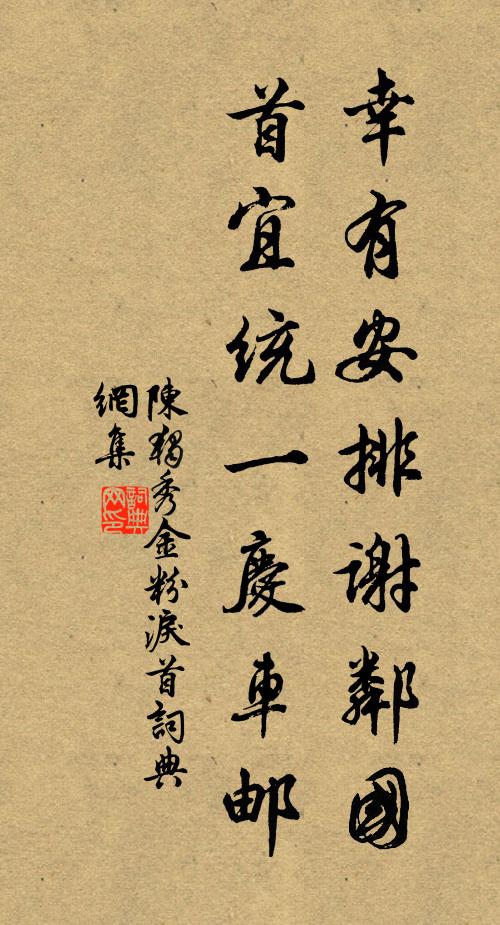 幸有安排谢鄰國
首宜統一慶車邮
陳獨秀金粉淚首詞典
網集
詞典
网印